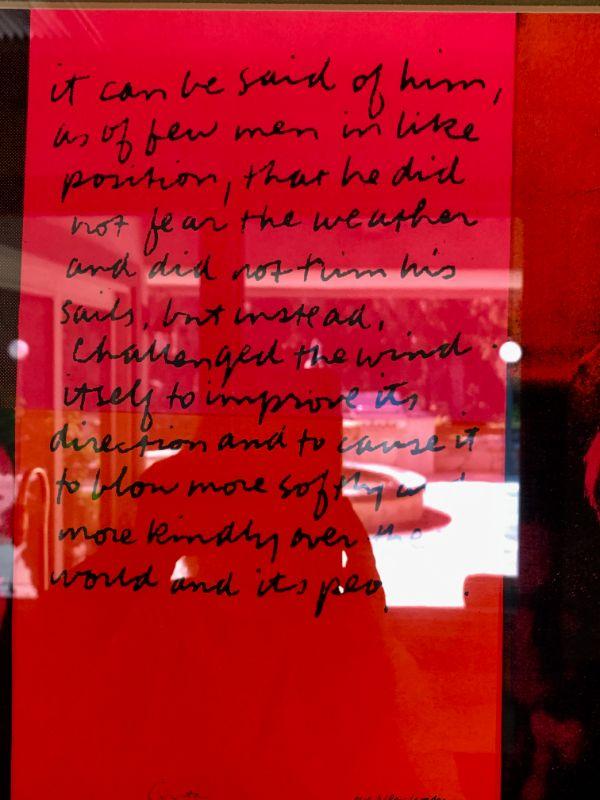 it can be said of him,
as of few men in like
position, that he did
not fear the weather
and did not trim his
sails, but instead,
challenged the wind
itself to improve its
direction and to cause it
to blow more softly and
more kindly over the
world and its peo